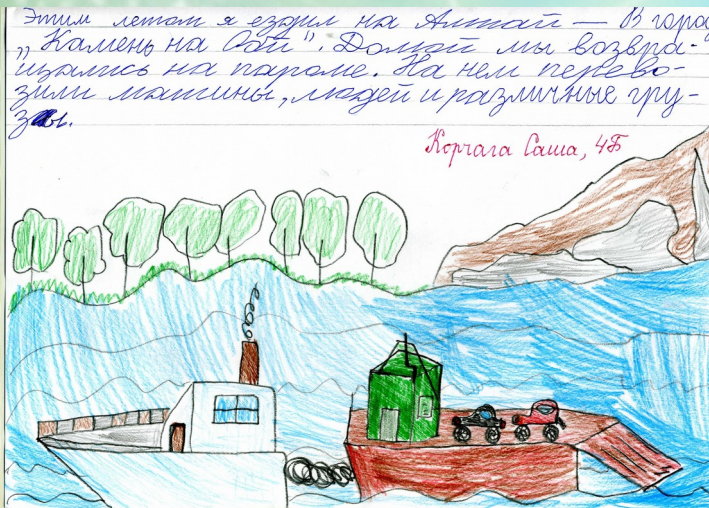 Этим летом я ездил на Алтай – В город
„Камень на Оби". Домой мы возвра-
щались на пароме. На нем перево-
зили машины, людей и различные гру-
зы.
Корчага Саша, 4Б